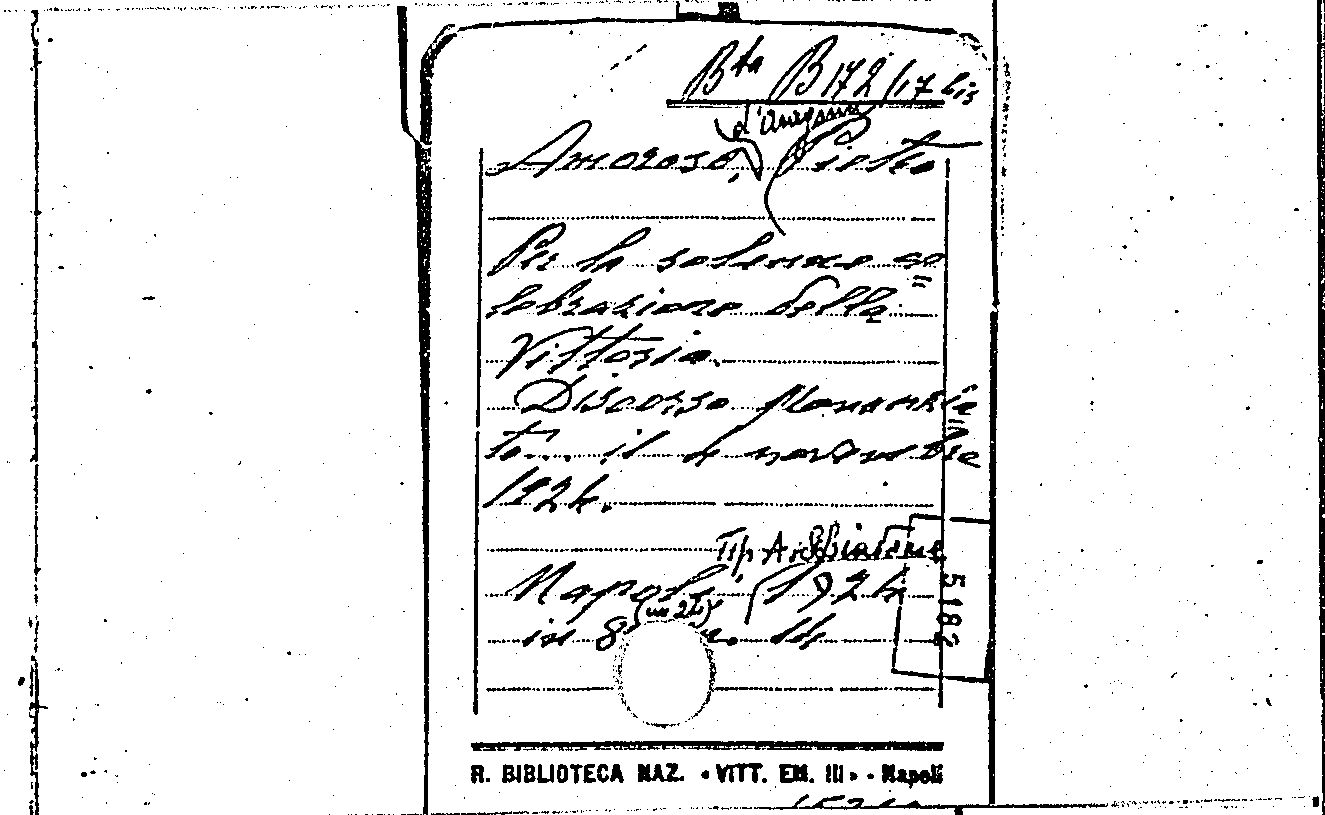 Bta B 172 /17 bis
d'Aragona
Amoroso, Pietro
Per la solenne ce=
lebrazione della
Vittoria.
Discorso pronunzia=
to... il 4 novembre
1924.
Tip. Artigianelli
Napoli, 1924
(in 24)
in 8° 14
5182
R. BIBLIOTECA NAZ. «VITT. EM. III» - Napoli